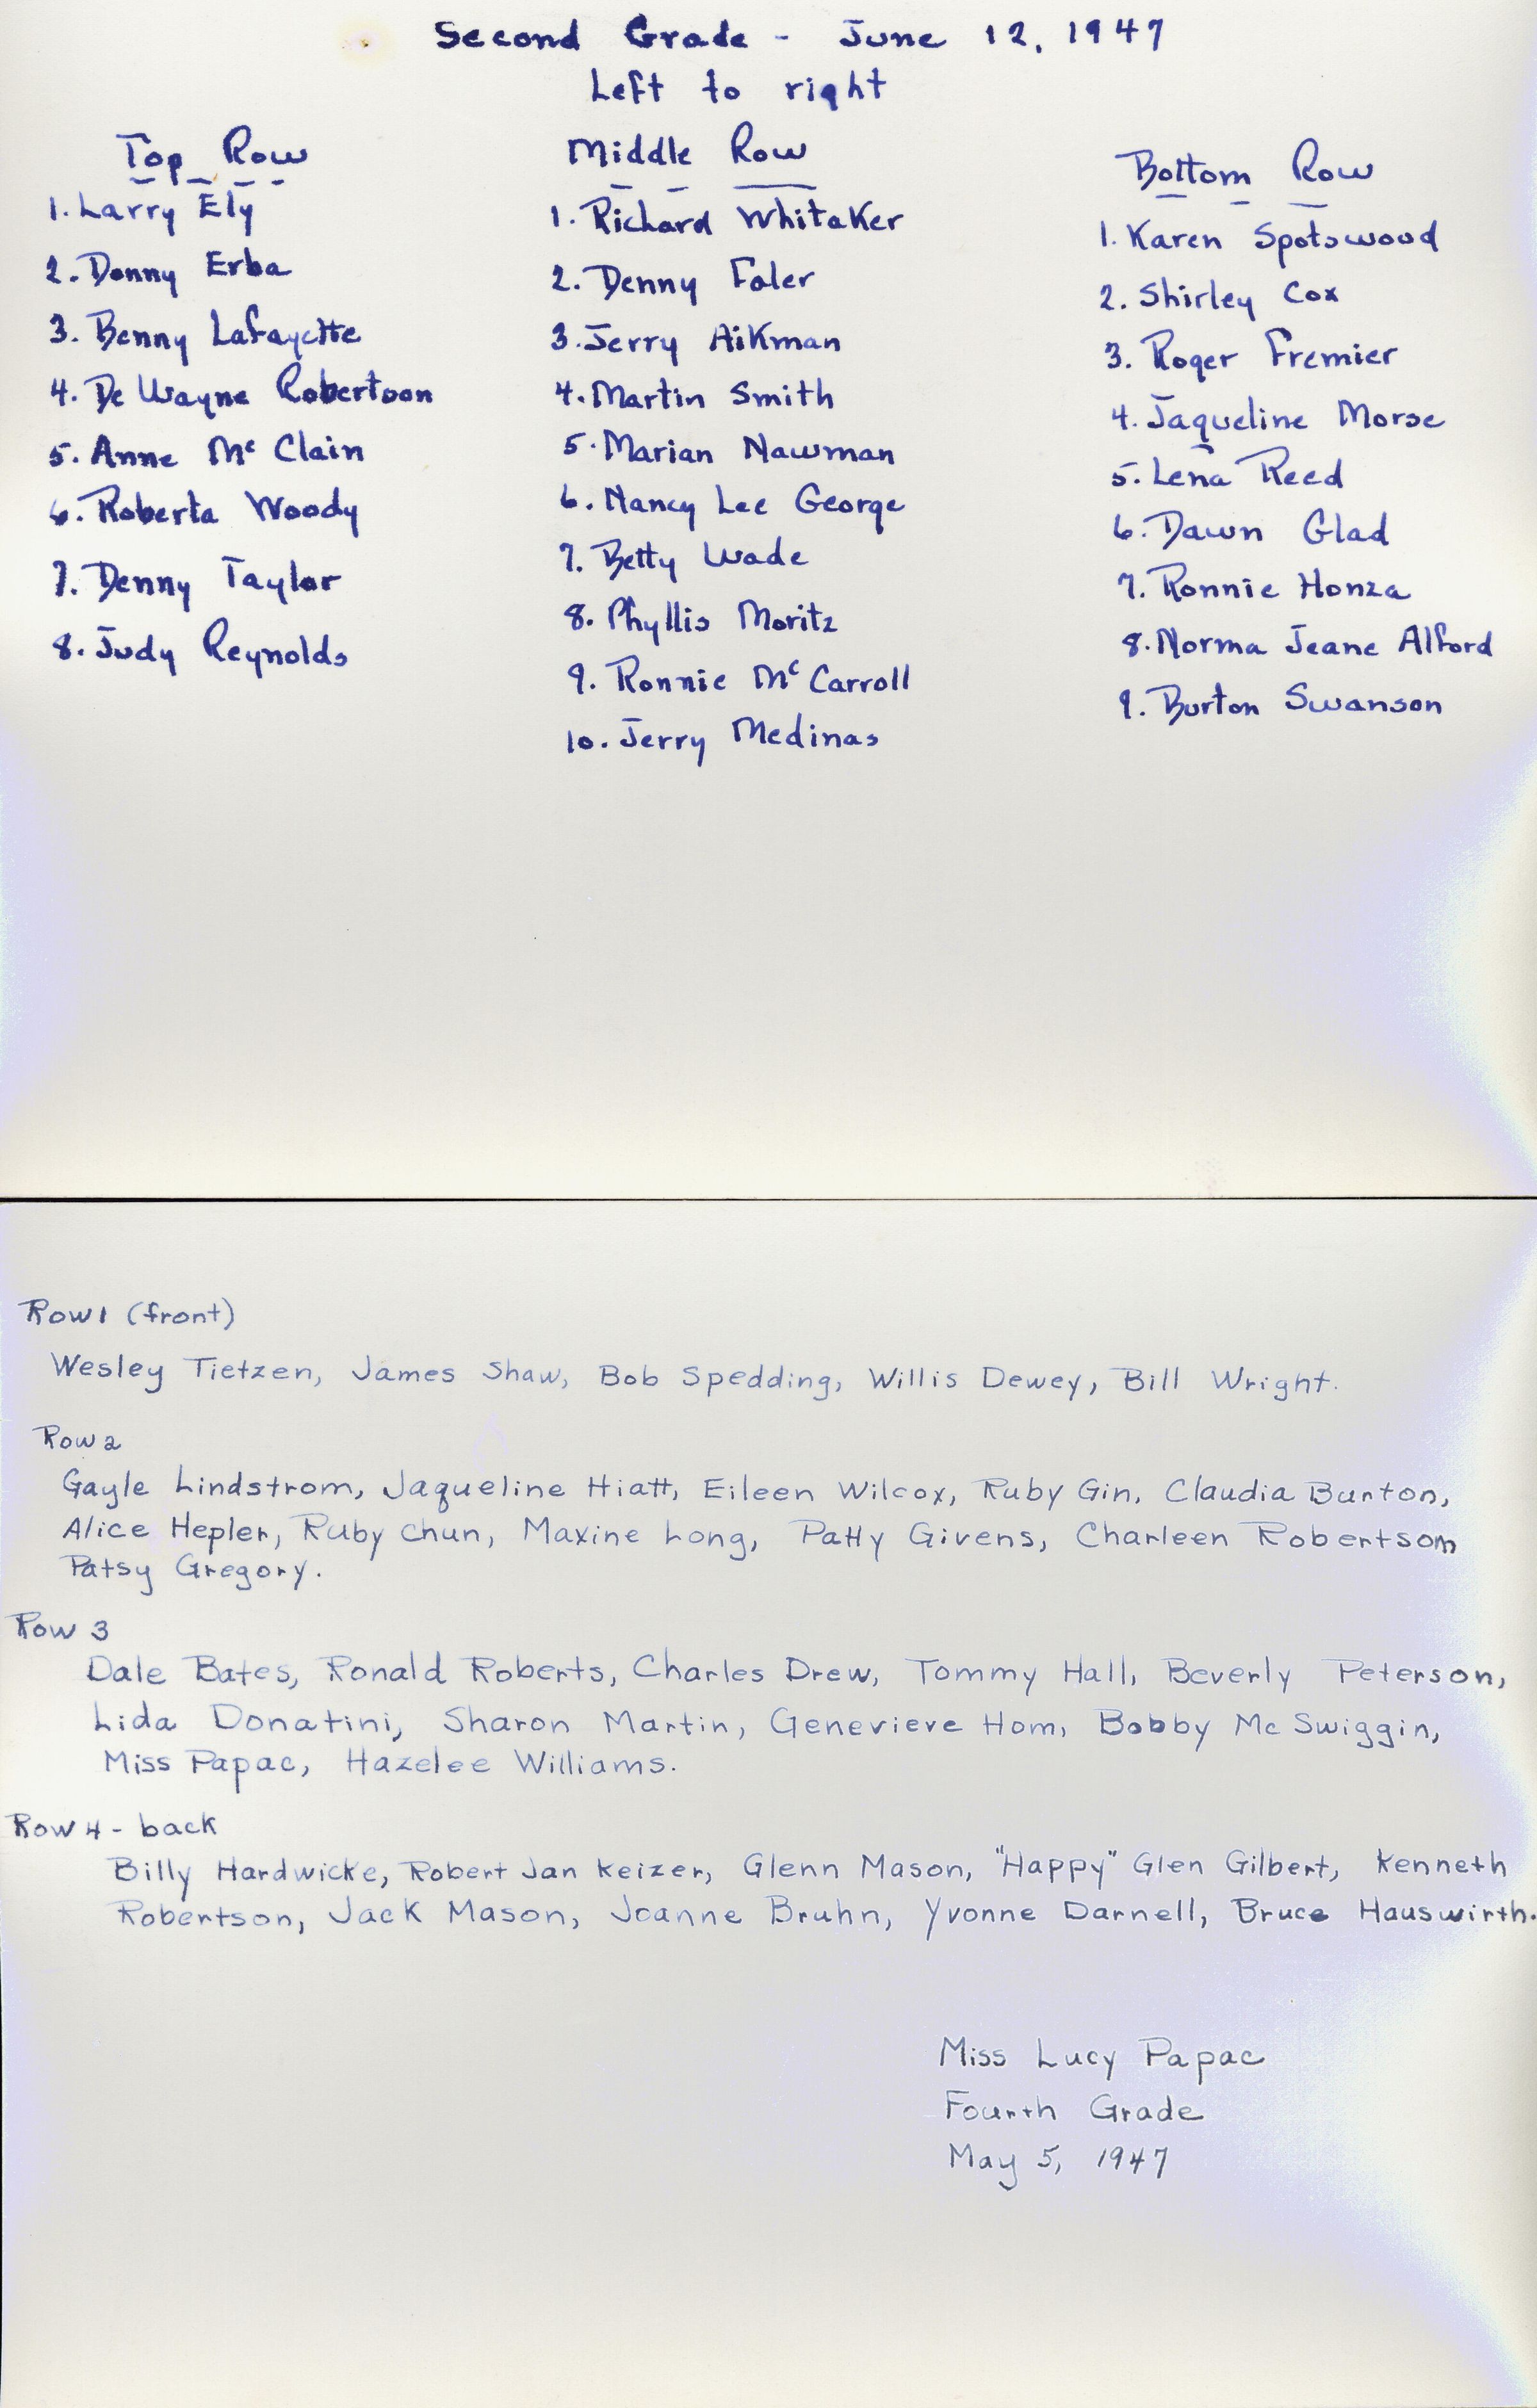 Second Grade - June 12, 1947
Left to right
Top Row
1. Larry Ely
2. Donny Erba
3. Benny Lafayette
4. De Wayne Robertson
5. Anne Mc Clain
6. Roberta Woody
7. Denny Taylor
8. Judy Reynolds
Middle Row
1. Richard Whitaker
2. Denny Foler
3. Jerry Aikman
4. Martin Smith
5. Marian Nawman
6. Nancy Lee George
7. Betty Wade
8. Phyllis Moritz
9. Ronnie Mc Carroll
10. Jerry Medinas
Bottom Row
1. Karen Spotswood
2. Shirley Cox
3. Roger Fremier
4. Jaqueline Morse
5. Lena Reed
6. Dawn Glad
7. Ronnie Honza
8. Norma Jeane Alford
9. Burton Swanson
Row 1 (front)
Wesley Tietzen, James Shaw, Bob Spedding, Willis Dewey, Bill Wright.
Row 2
Gayle Lindstrom, Jaqueline Hiatt, Eileen Wilcox, Ruby Gin, Claudia Burton,
Alice Hepler, Ruby Chun, Maxine Long, Patty Givens, Charleen Robertson
Patsy Gregory.
Row 3
Dale Bates, Ronald Roberts, Charles Drew, Tommy Hall, Beverly Peterson,
Lida Donatini, Sharon Martin, Genevieve Hom, Bobby Mc Swiggin,
Miss Papac, Hazelee Williams.
Row 4 - back
Billy Hardwicke, Robert Jan Keizer, Glenn Mason, "Happy" Glen Gilbert, Kenneth
Robertson, Jack Mason, Joanne Bruhn, Yvonne Darnell, Bruce Hauswirth.
Miss Lucy Papac
Fourth Grade
May 5, 1947